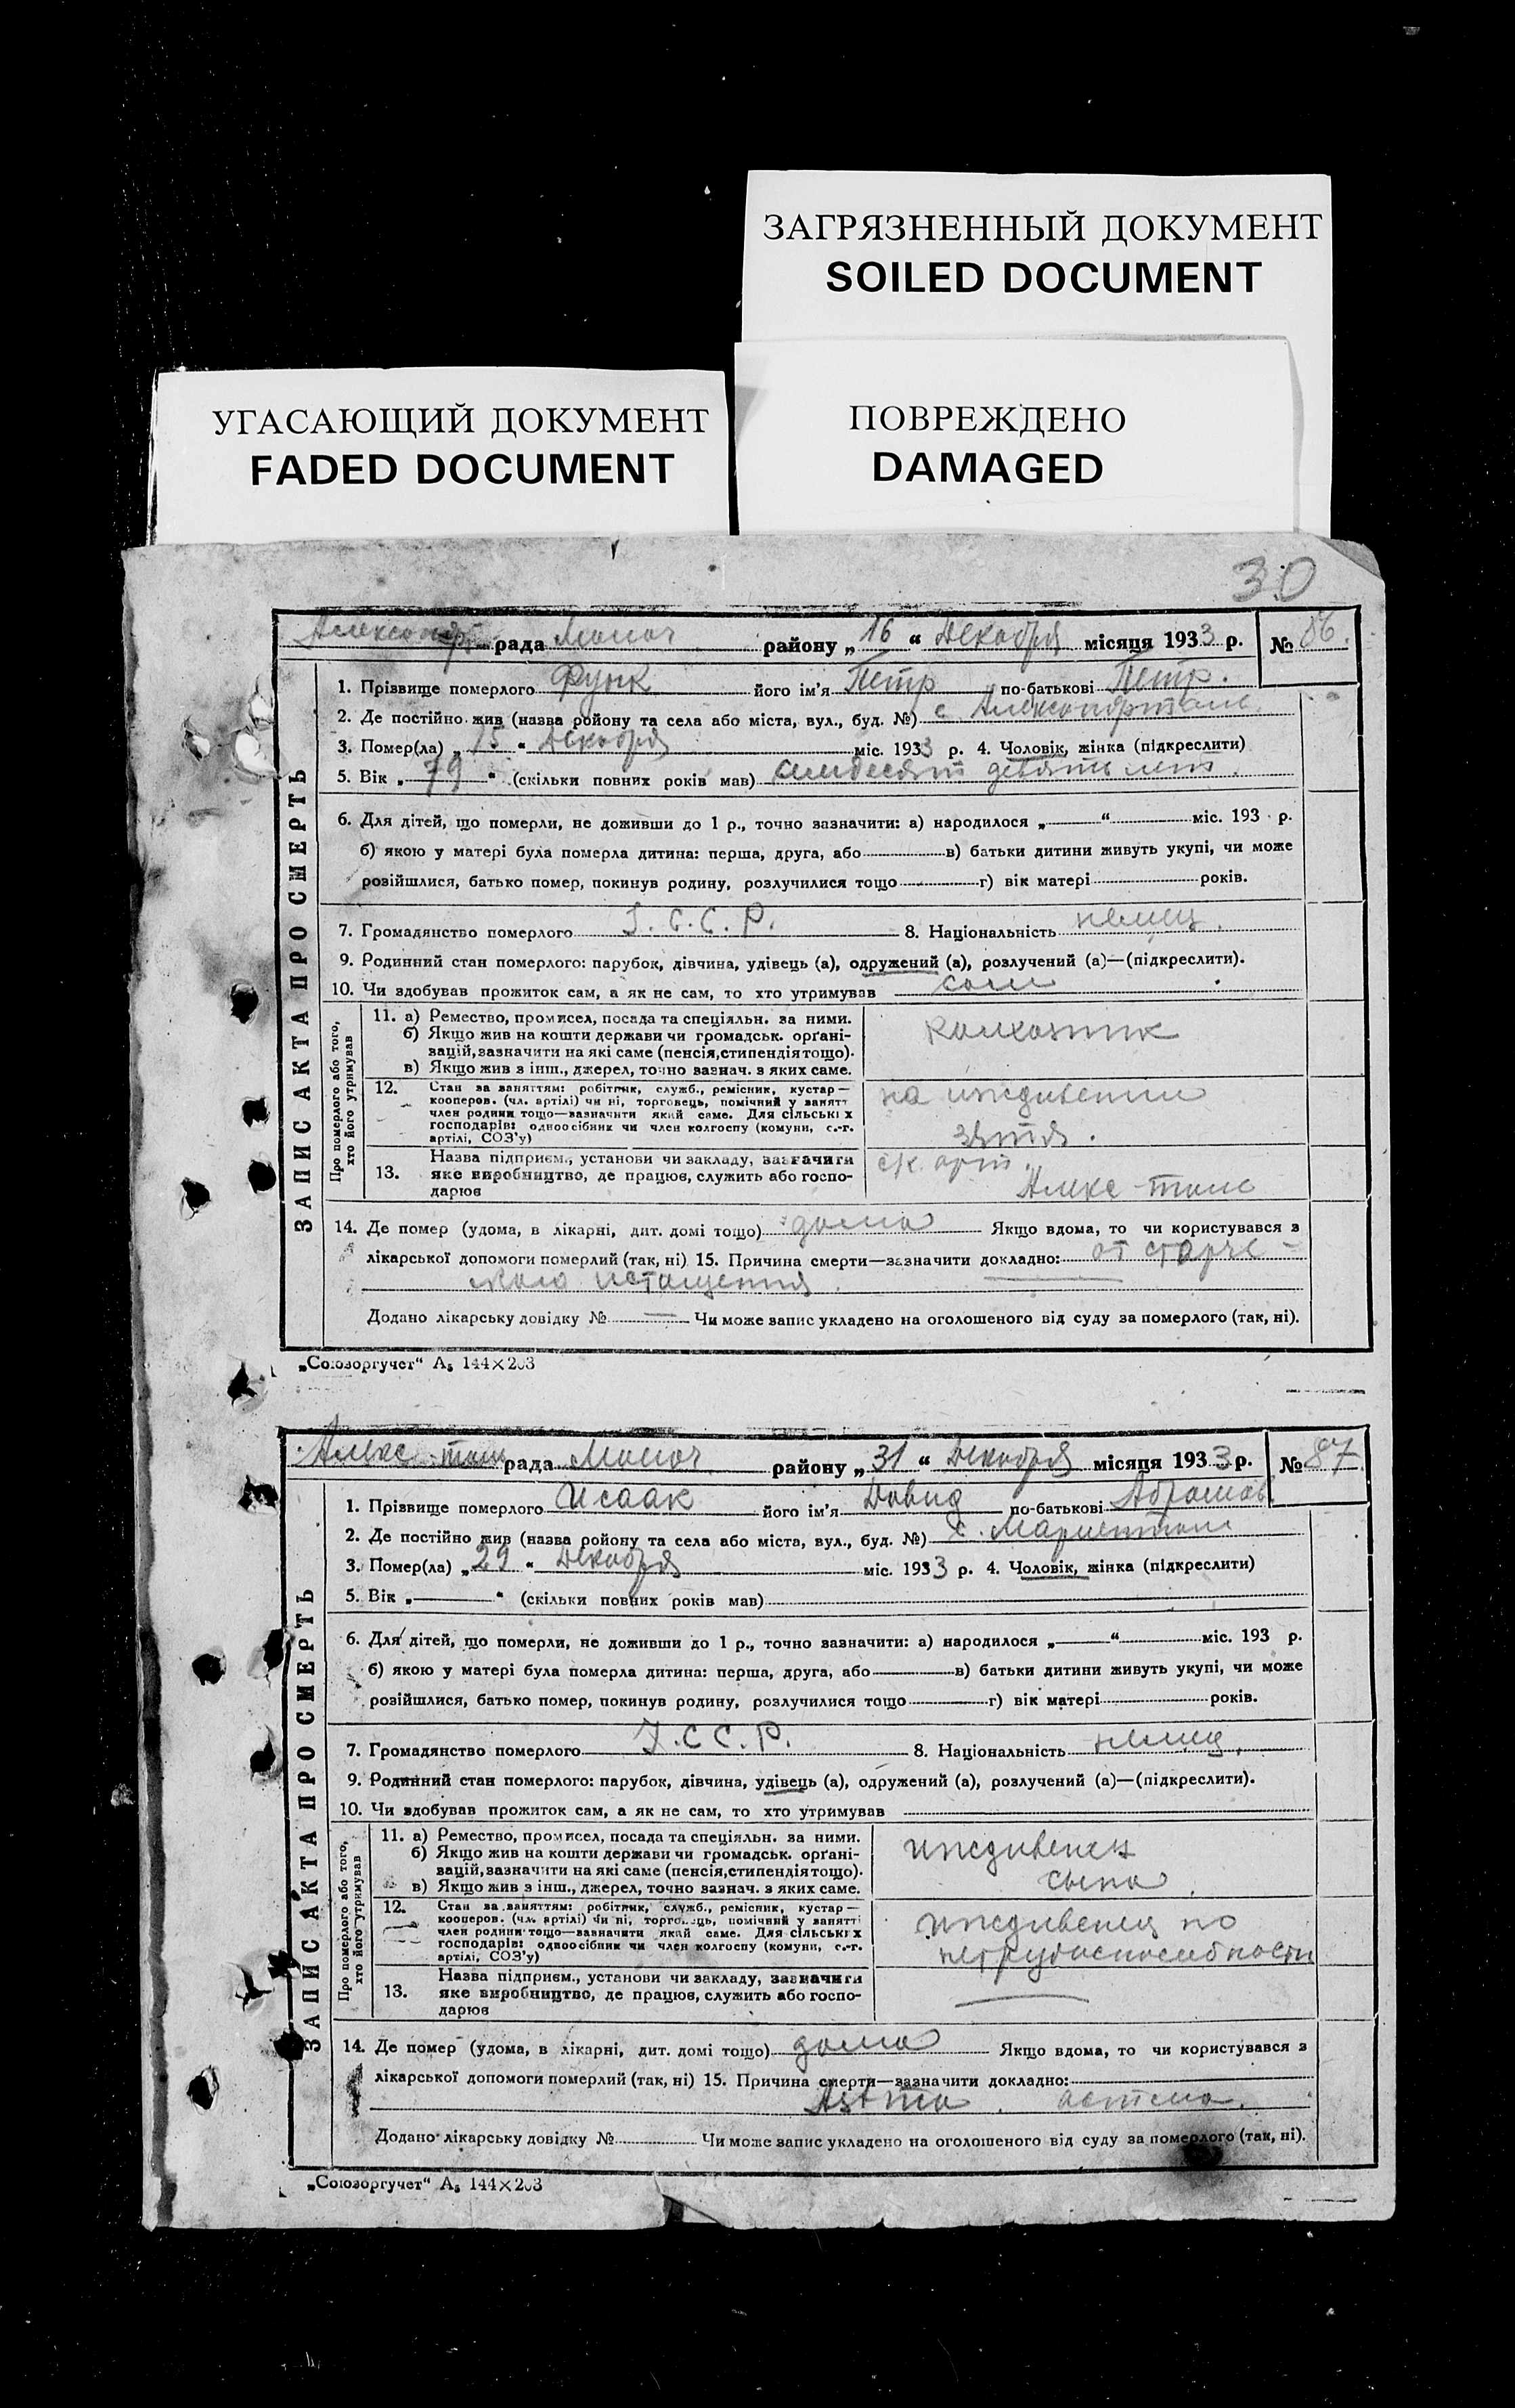 ЗАГРЯЗНЕННЫЙ ДОКУМЕНТ
SOILED DOCUMENT
УГАСАЮЩИЙ ДОКУМЕНТ
FADED DOCUMENT
ПОВРЕЖДЕНО
DAMAGED
30
рада Молоч району „16“ Декабря місяця 1933 р. № 86.
1. Прізвище померлого Функ його ім'я Петр по-батькові Петр.
2. Де постійно жив (назва району та села або міста, вул., буд. №) с
3. Помер(ла) „15“ Декабря міс. 1933 р. 4. Чоловік, жінка (підкреслити)
5. Вік „79“ (скільки повних років мав) семдесят девять лет.
6. Для дітей, що померли, не доживши до 1 р., точно зазначити: а) народилося „ “ міс. 193 р.
б) якою у матері була померла дитина: перша, друга, або в) батьки дитини живуть укупі, чи може
розійшлися, батько помер, покинув родину, розлучилися тощо г) вік матері років.
7. Громадянство померлого У.С.С.Р. 8. Національність немец.
9. Родинний стан померлого: парубок, дівчина, удівець (а), одружений (а), розлучений (а)—(підкреслити).
10. Чи здобував прожиток сам, а як не сам, то хто утримував сам
ЗАПИС АКТА ПРО СМЕРТЬ
Про померлого або того,
хто його утримував
11. а) Ремество, промисел, посада та спеціяльн. за ними.
б) Якщо жив на кошти держави чи громадськ. орґані-
зацій, зазначити на які саме (пенсія, стипендія тощо).
в) Якщо жив з інш., джерел, точно зазнач. з яких саме.
колхозник
12. Стан за заняттям: робітник, служб., ремісник, кустар—
кооперов. (чл. артілі) чи ні, торговець, помічний у занятт
член родини тощо—зазначити який саме. Для сільських
господарів: одноосібник чи член колгоспу (комуни, с.-г.
артілі, СОЗ'у)
на иждивении
зятя.
13. Назва підприєм., установи чи закладу, зазначити
яке виробництво, де працює, служить або госпо-
дарює
с/х. арт.
14. Де помер (удома, в лікарні, дит. домі тощо) дома Якщо вдома, то чи користувався з
лікарської допомоги померлий (так, ні) 15. Причина смерти—зазначити докладно: от старче-
ского истощения.
Додано лікарську довідку № — Чи може запис укладено на оголошеного від суду за померлого (так, ні).
„Союзоргучет“ А₅ 144×203
рада Молоч району „31“ Декабря місяця 1933 р. № 87
1. Прізвище померлого Исаак його ім'я Давид по-батькові Абрамов
2. Де постійно жив (назва району та села або міста, вул., буд. №) с. Мариенталь
3. Помер(ла) „29“ Декабря міс. 1933 р. 4. Чоловік, жінка (підкреслити)
5. Вік „ “ (скільки повних років мав)
6. Для дітей, що померли, не доживши до 1 р., точно зазначити: а) народилося „ “ міс. 193 р.
б) якою у матері була померла дитина: перша, друга, або в) батьки дитини живуть укупі, чи може
розійшлися, батько помер, покинув родину, розлучилися тощо г) вік матері років.
7. Громадянство померлого У.С.С.Р. 8. Національність немец.
9. Родинний стан померлого: парубок, дівчина, удівець (а), одружений (а), розлучений (а)—(підкреслити).
10. Чи здобував прожиток сам, а як не сам, то хто утримував
ЗАПИС АКТА ПРО СМЕРТЬ
Про померлого або того,
хто його утримував
11. а) Ремество, промисел, посада та спеціяльн. за ними.
б) Якщо жив на кошти держави чи громадськ. орґані-
зацій, зазначити на які саме (пенсія, стипендія тощо).
в) Якщо жив з інш., джерел, точно зазнач. з яких саме.
иждивенец
сына.
12. Стан за заняттям: робітник, служб., ремісник, кустар—
кооперов. (чл. артілі) чи ні, торговець, помічний у занятті
член родини тощо—зазначити який саме. Для сільських
господарів: одноосібник чи член колгоспу (комуни, с.-г.
артілі, СОЗ'у)
иждивенец по
нетрудоспособности
13. Назва підприєм., установи чи закладу, зазначити
яке виробництво, де працює, служить або госпо-
дарює
14. Де помер (удома, в лікарні, дит. домі тощо) дома Якщо вдома, то чи користувався з
лікарської допомоги померлий (так, ні) 15. Причина смерти—зазначити докладно:
астма.
Додано лікарську довідку № Чи може запис укладено на оголошеного від суду за померлого (так, ні).
„Союзоргучет“ А₅ 144×203